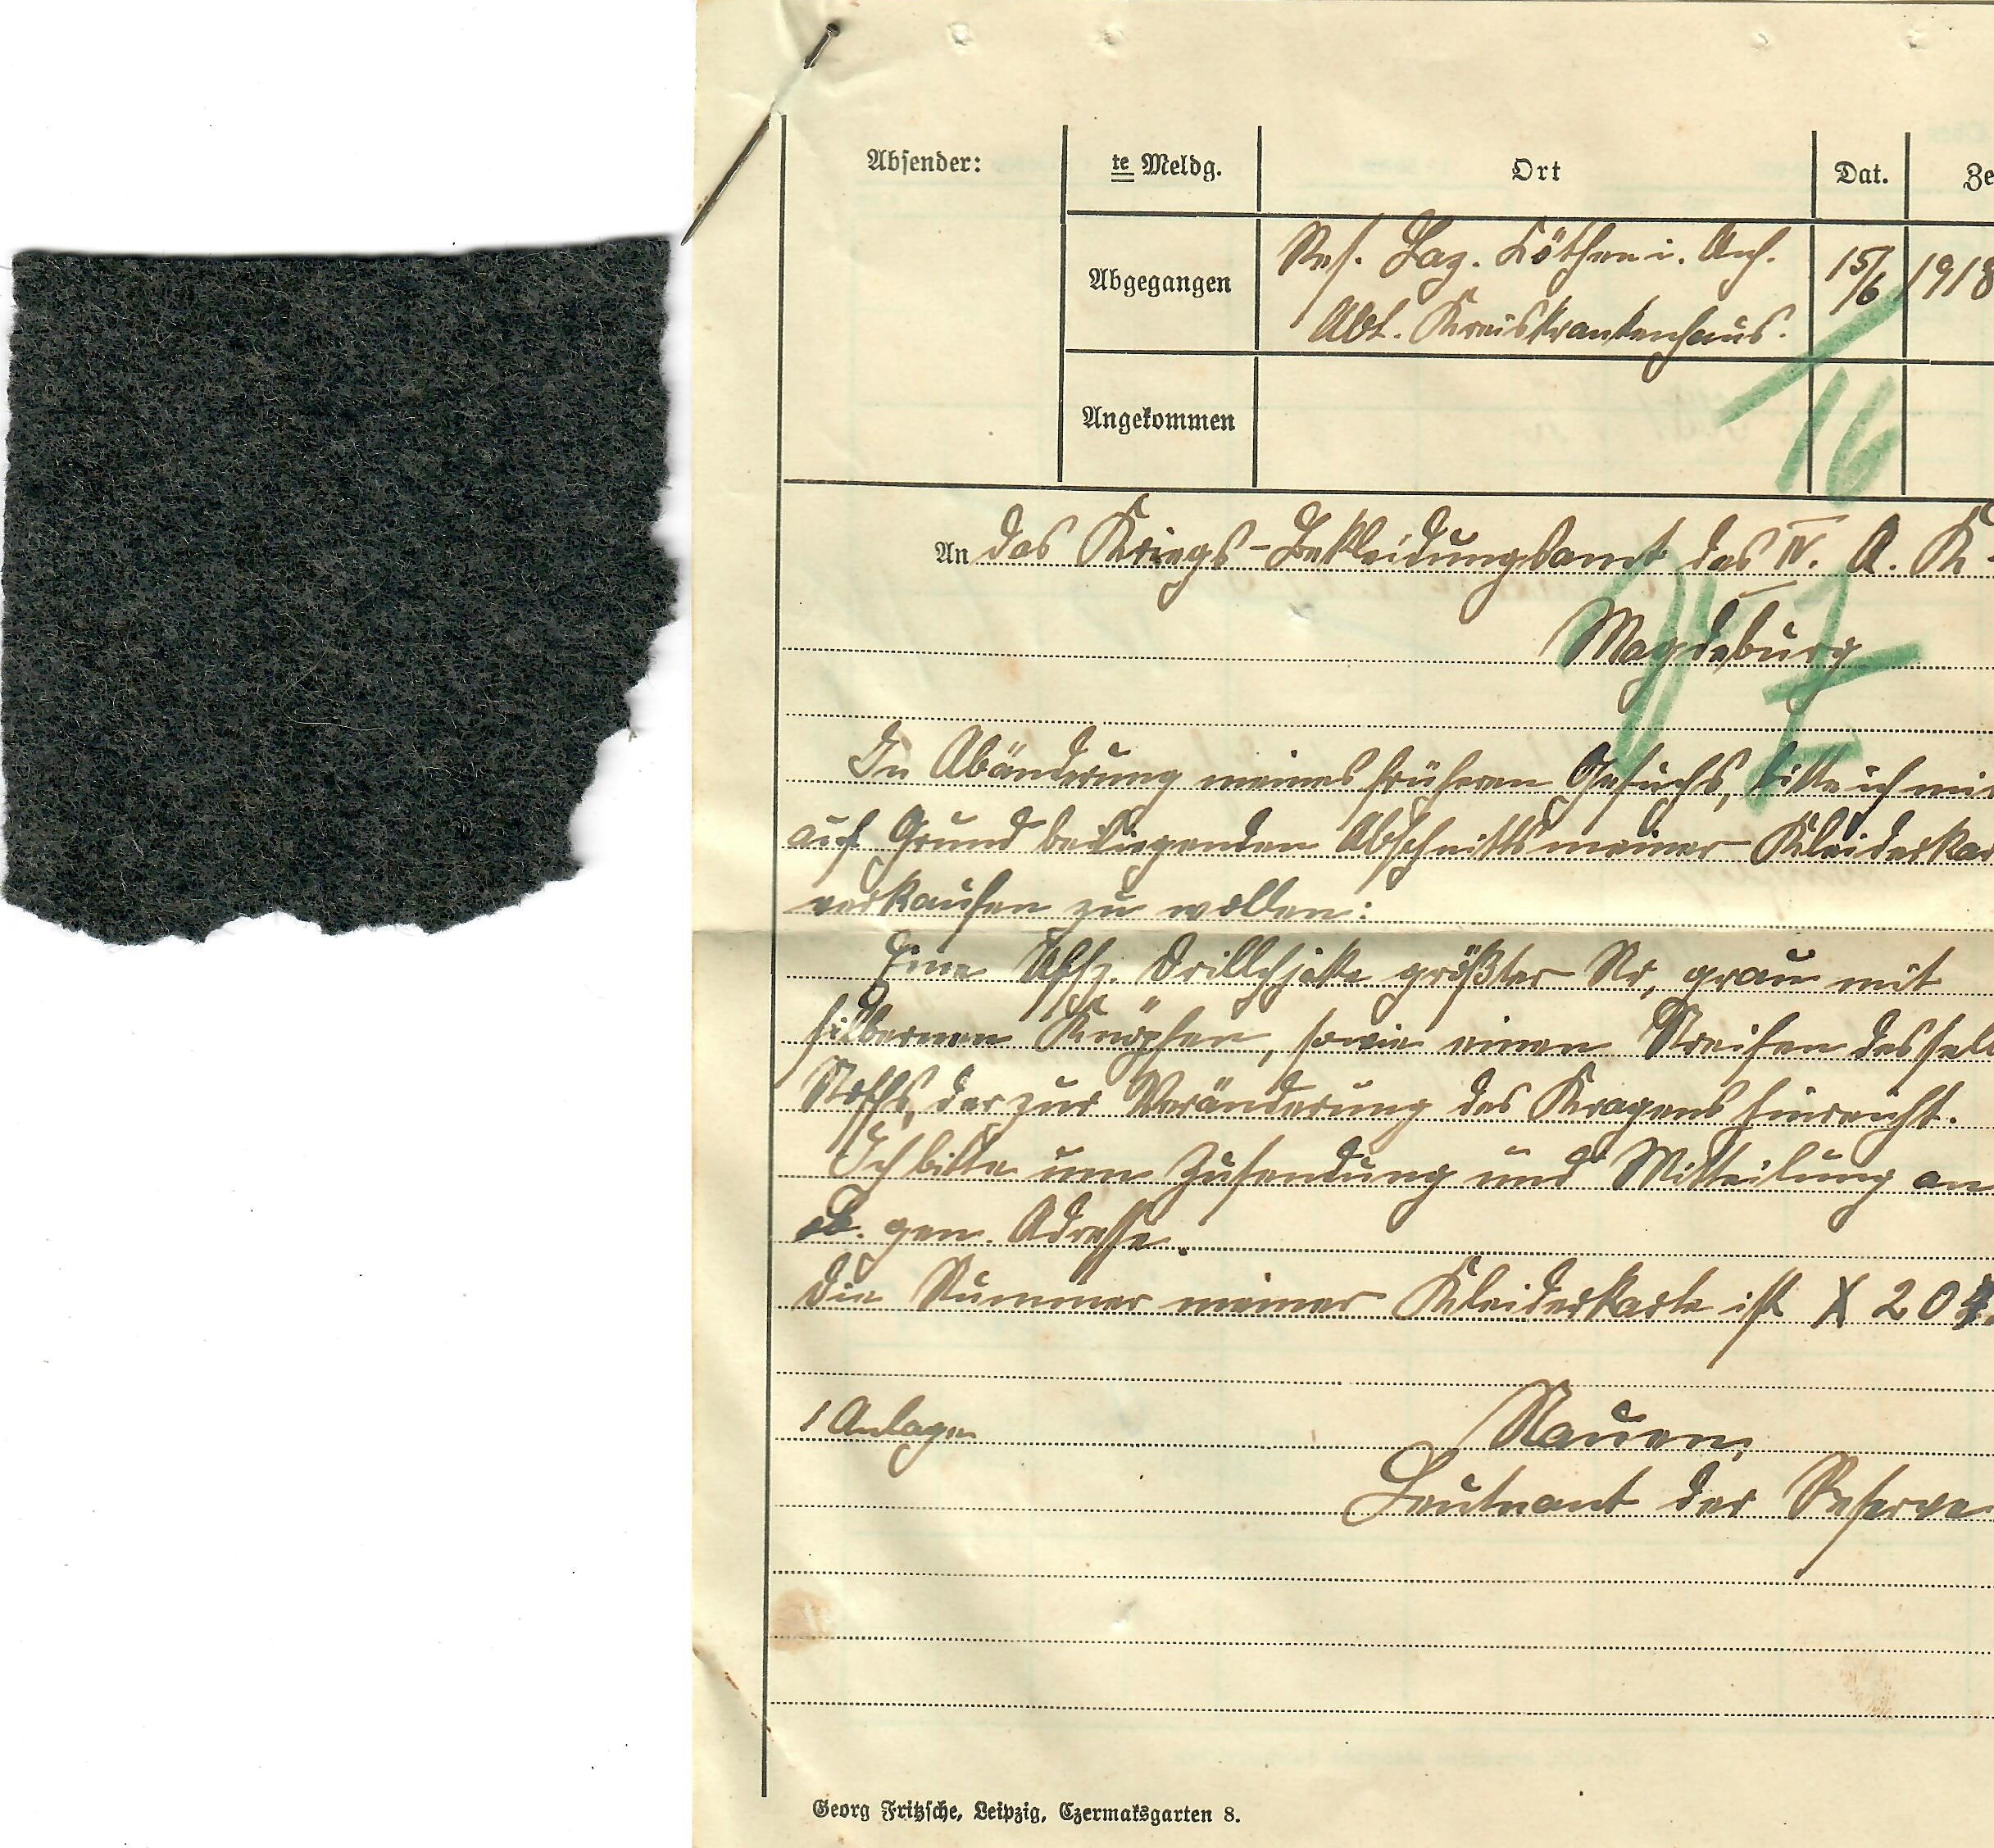 Absender:
te Meldg.
Ort
Dat.
Ze
Abgegangen
Res. Laz. Köthen i. Anh.
Abt. Kreiskrankenhaus.
15/6
1918
Angekommen
16
An das Kriegs-Bekleidungsamt des IV. A. K.
Magdeburg
In Abänderung meines früheren Gesuchs, bitte ich mir
auf Grund beiliegenden Abschnitts meiner Kleiderkar
verkaufen zu wollen:
Eine Uffz. Drillichjake größter Nr, grau mit
silbernen Knöpfen, sowie einen Streifen dessel
Stoffs, der zur Veränderung des Kragens hinreicht.
Ich bitte um Zusendung und Mitteilung an
ob. gen. Adresse.
Die Nummer meiner Kleiderkarte ist X 20
1 Anlage
Nauen,
Leutnant der Reserve
Georg Fritzsche, Leipzig, Czermaksgarten 8.